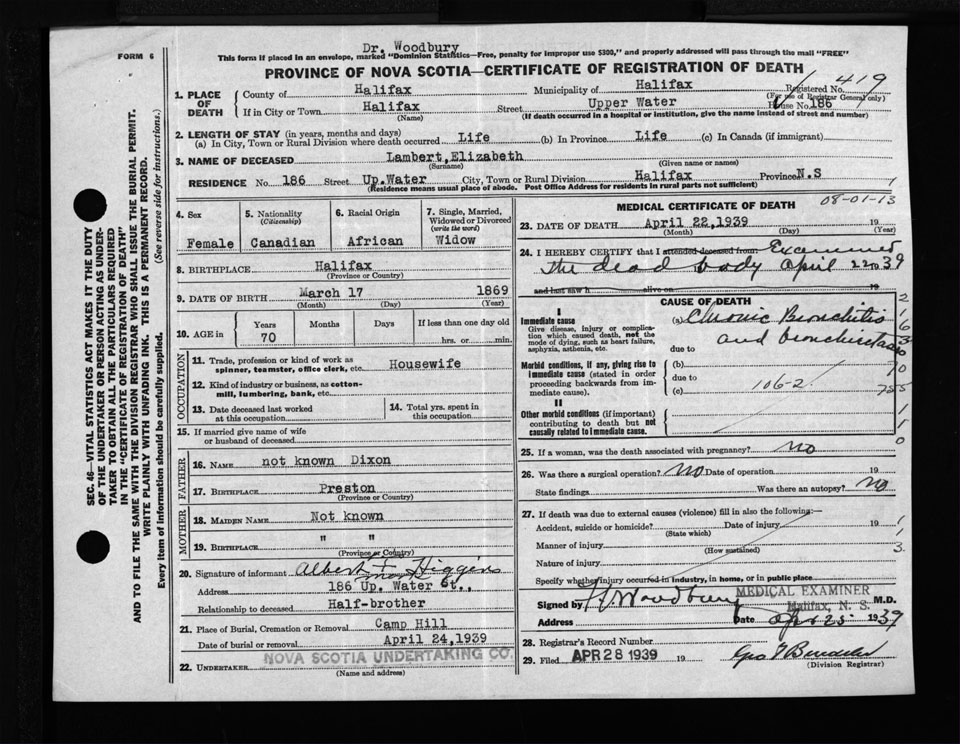 Dr. Woodbury
FORM 6
This form if placed in an envelope, marked "Dominion Statistics—Free, penalty for improper use $300," and properly addressed will pass through the mail "FREE"
PROVINCE OF NOVA SCOTIA—CERTIFICATE OF REGISTRATION OF DEATH
1. PLACE OF DEATH
County of Halifax Municipality of Halifax Registered No. 419
(For use of Registrar General only)
If in City or Town Halifax Street Upper Water House No. 186
(Name) (If death occurred in a hospital or institution, give the name instead of street and number)
2. LENGTH OF STAY (in years, months and days)
(a) In City, Town or Rural Division where death occurred Life (b) In Province Life (c) In Canada (if immigrant)
3. NAME OF DECEASED Lambert, Elizabeth
(Surname) (Given name or names)
RESIDENCE No. 186 Street Up. Water City, Town or Rural Division Halifax Province N.S
(Residence means usual place of abode. Post Office Address for residents in rural parts not sufficient)
08-01-13
4. Sex
Female
5. Nationality
(Citizenship)
Canadian
6. Racial Origin
African
7. Single, Married, Widowed or Divorced
(write the word)
Widow
8. BIRTHPLACE Halifax
(Province or Country)
9. DATE OF BIRTH March 17 1869
(Month) (Day) (Year)
10. AGE in Years Months Days If less than one day old
70 hrs. or min.
OCCUPATION
11. Trade, profession or kind of work as spinner, teamster, office clerk, etc. Housewife
12. Kind of industry or business, as cotton-mill, lumbering, bank, etc.
13. Date deceased last worked at this occupation
14. Total yrs. spent in this occupation
15. If married give name of wife or husband of deceased
FATHER
16. NAME not known Dixon
17. BIRTHPLACE Preston
(Province or Country)
MOTHER
18. MAIDEN NAME Not known
19. BIRTHPLACE " "
(Province or Country)
20. Signature of informant Albert Higgins
Address 186 Up. Water St.,
Relationship to deceased Half-brother
21. Place of Burial, Cremation or Removal Camp Hill
Date of burial or removal April 24,1939
22. UNDERTAKER NOVA SCOTIA UNDERTAKING CO.
(Name and address)
MEDICAL CERTIFICATE OF DEATH
23. DATE OF DEATH April 22,1939 19
(Month) (Day) (Year)
24. I HEREBY CERTIFY that I attended deceased from Examined
the dead body April 22nd 39
and last saw h alive on 19
CAUSE OF DEATH
I
Immediate cause
Give disease, injury or complication which caused death, not the mode of dying, such as heart failure, asphyxia, asthenia, etc.
(a) Chronic Bronchitis
and bronchiectasis
due to
Morbid conditions, if any, giving rise to immediate cause (stated in order proceeding backwards from immediate cause).
due to
106-2
(c)
II
Other morbid conditions (if important) contributing to death but not causally related to immediate cause.
25. If a woman, was the death associated with pregnancy? No
26. Was there a surgical operation? No Date of operation 19
State findings Was there an autopsy? No
27. If death was due to external causes (violence) fill in also the following:—
Accident, suicide or homicide? Date of injury 19
(State which)
Manner of injury
(How sustained)
Nature of injury
Specify whether injury occurred in industry, in home, or in public place
MEDICAL EXAMINER
Signed by Woodbury M.D.
Halifax, N. S.
Address Date Apr 25 1939
28. Registrar's Record Number
29. Filed APR 28 1939 19
(Division Registrar)
SEC. 46—VITAL STATISTICS ACT MAKES IT THE DUTY
OF THE UNDERTAKER OR PERSON ACTING AS UNDER-
TAKER TO OBTAIN ALL THE PARTICULARS REQUIRED
IN THE "CERTIFICATE OF REGISTRATION OF DEATH"
AND TO FILE THE SAME WITH THE DIVISION REGISTRAR WHO SHALL ISSUE THE BURIAL PERMIT.
WRITE PLAINLY WITH UNFADING INK. THIS IS A PERMANENT RECORD.
Every item of information should be carefully supplied. (See reverse side for instructions.)